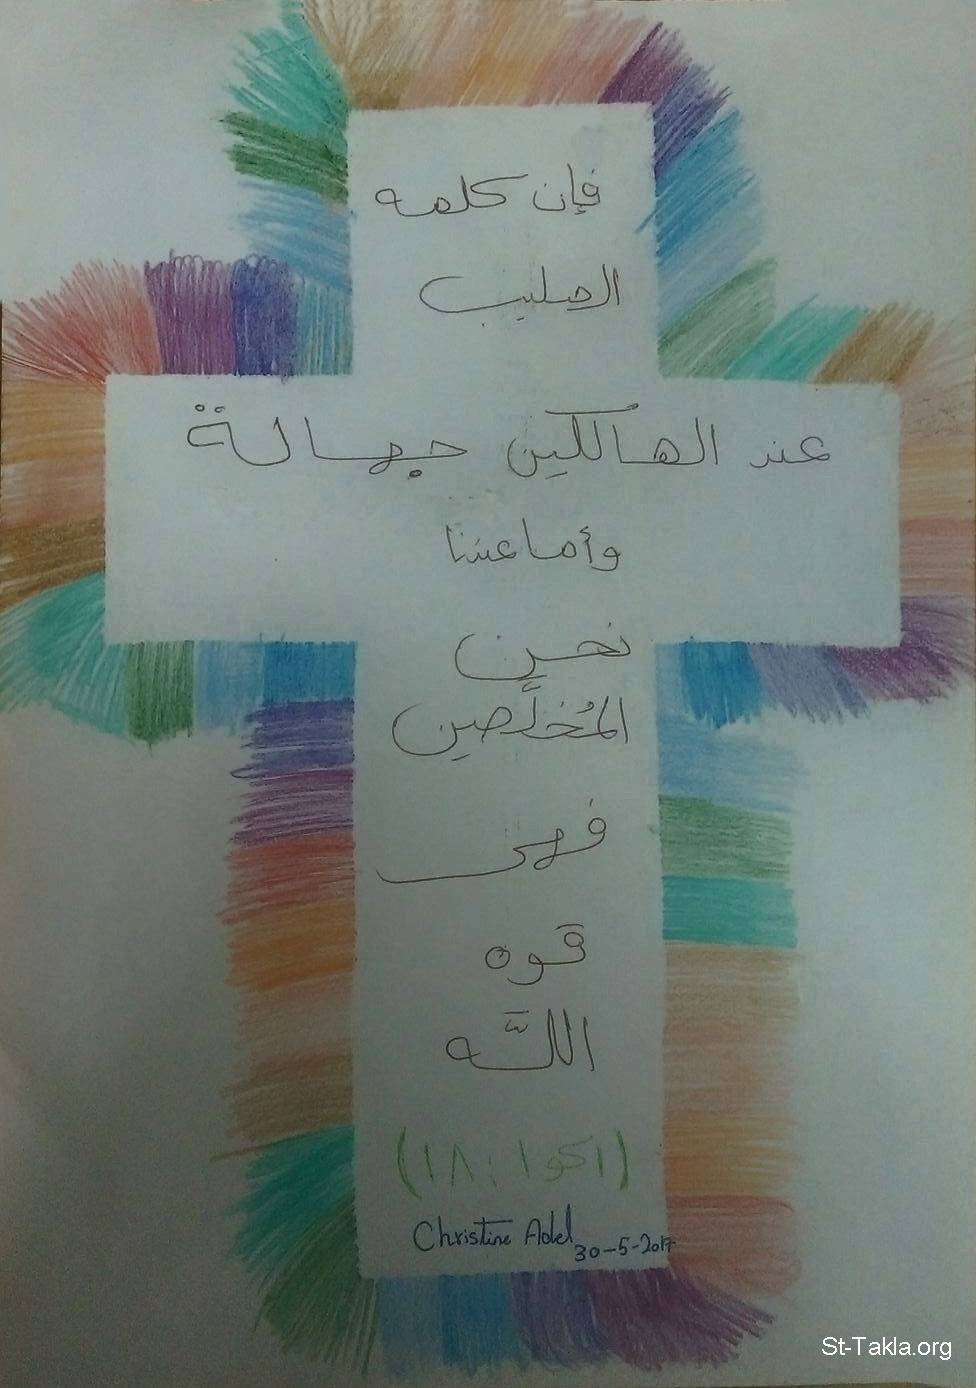 فإن كلمه
الصليب
عند الهالكين جهالة
وأما عندنا
نحن
المُخلَّصين
فهى
قوه
اللَّه
(١كو١ : ١٨)
Christine Adel
30-5-2017
St-Takla.org